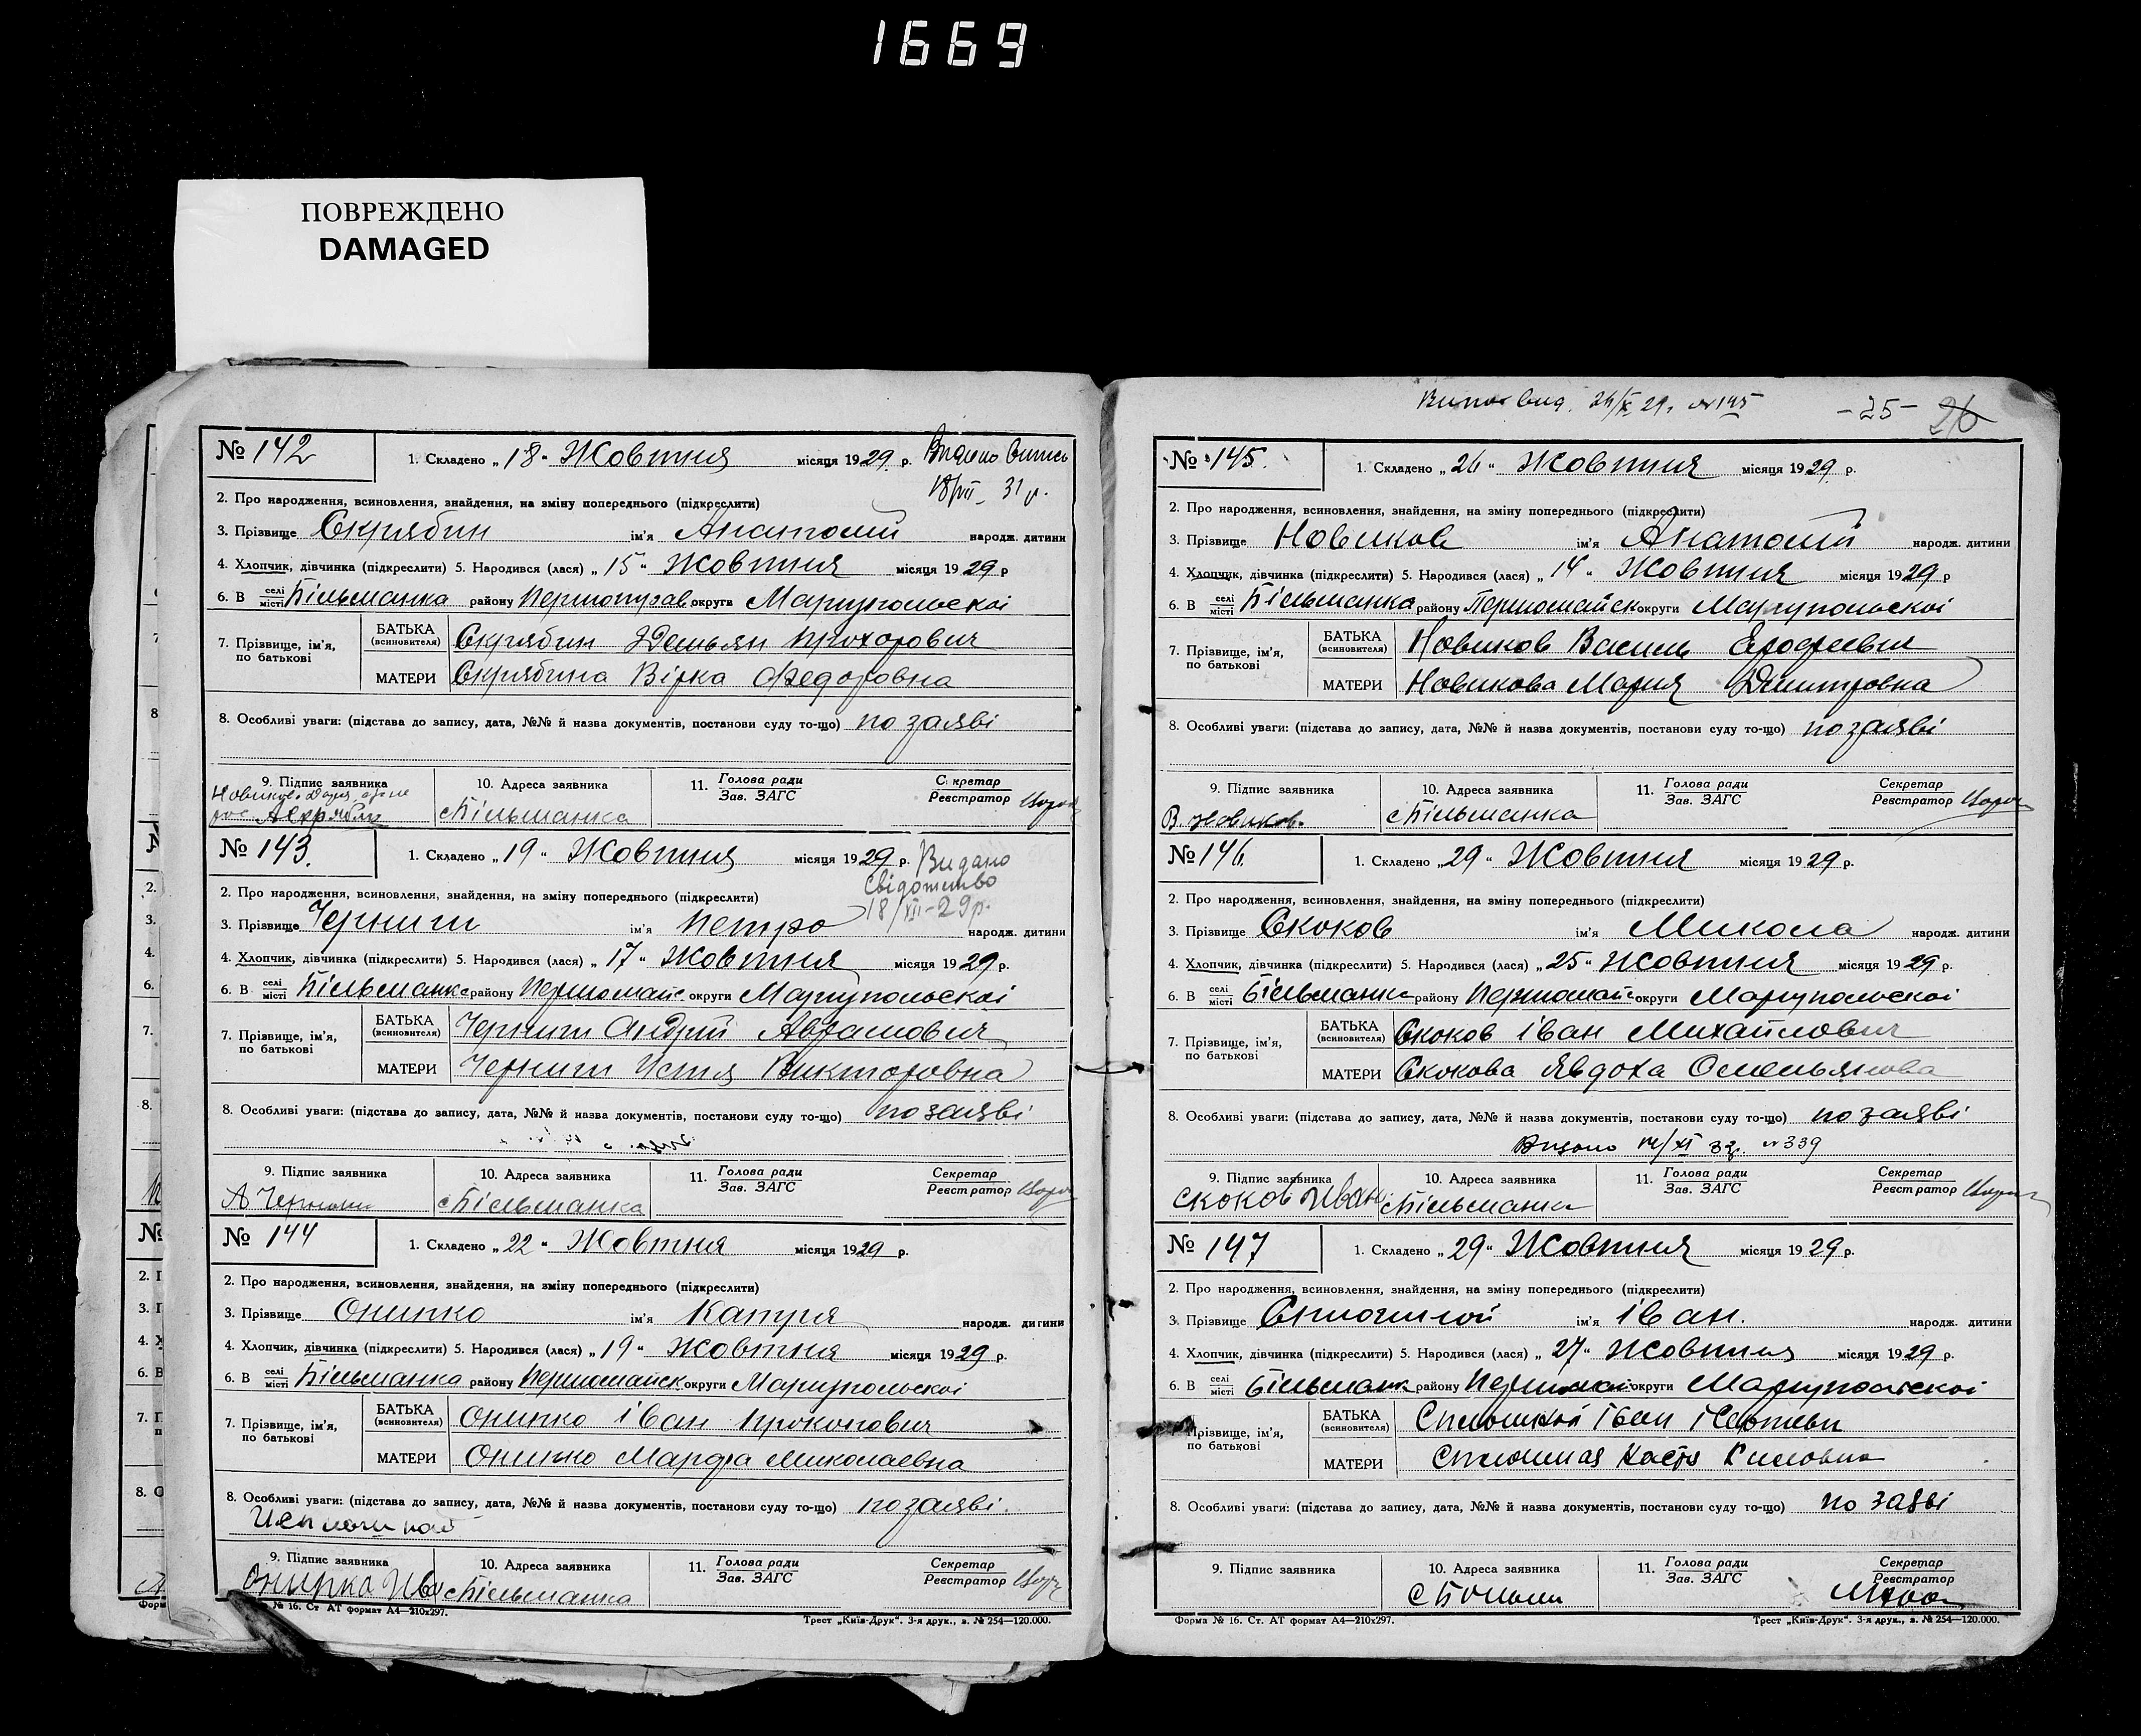 1669
ПОВРЕЖДЕНО
DAMAGED
№ 142
1. Складено „18“ Жовтня місяця 1929 р. Видано витяг
18/VII - 31 р.
2. Про народження, всиновлення, знайдення, на зміну попереднього (підкреслити)
3. Прізвище Скрябин ім'я Анатолій народж. дитини
4. Хлопчик, дівчинка (підкреслити) 5. Народився (лася) „15“ Жовтня місяця 1929 р
6. В селі місті Більманка району округи Маріупольскоі
7. Прізвище, ім'я, по батькові
БАТЬКА (всиновителя) Скрябин Демьян Прохорович
МАТЕРИ Скрябина Вірка Федоровна
8. Особливі уваги: (підстава до запису, дата, №№ й назва документів, постанови суду то-що) по заяві
9. Підпис заявника 10. Адреса заявника 11. Голова ради Зав. ЗАГС Секретар Реєстратор
с Більманка
№ 143.
1. Складено „19“ Жовтня місяця 1929 р. Видано
Свідотство
18/XII-29р.
2. Про народження, всиновлення, знайдення, на зміну попереднього (підкреслити)
3. Прізвище ім'я Петро народж. дитини
4. Хлопчик, дівчинка (підкреслити) 5. Народився (лася) „17“ Жовтня місяця 1929 р.
6. В селі місті Більманка району Першомайс округи Маріупольскоі
7. Прізвище, ім'я, по батькові
БАТЬКА (всиновителя) Андрій Аврамович
МАТЕРИ Устя Викторовна
8. Особливі уваги: (підстава до запису, дата, №№ й назва документів, постанови суду то-що) по заяві
9. Підпис заявника 10. Адреса заявника 11. Голова ради Зав. ЗАГС Секретар Реєстратор
с Більманка
№ 144
1. Складено „22“ Жовтня місяця 1929 р.
2. Про народження, всиновлення, знайдення, на зміну попереднього (підкреслити)
3. Прізвище Онипко ім'я Катря народж. дитини
4. Хлопчик, дівчинка (підкреслити) 5. Народився (лася) „19“ Жовтня місяця 1929 р.
6. В селі місті Більманка району Першомайск округи Маріупольскоі
7. Прізвище, ім'я, по батькові
БАТЬКА (всиновителя) Онипко Іван Прокопович
МАТЕРИ Онипко Марфа Миколаевна
8. Особливі уваги: (підстава до запису, дата, №№ й назва документів, постанови суду то-що) по заяві.
9. Підпис заявника 10. Адреса заявника 11. Голова ради Зав. ЗАГС Секретар Реєстратор
Онипко Ива с Більманка
№ 16. Ст АТ формат А4—210х297. Трест „Київ-Друк“. 3-я друк., з. № 254—120.000.
24/X 29. № 145
-25- 26
№ 145.
1. Складено „24“ Жовтня місяця 1929 р.
2. Про народження, всиновлення, знайдення, на зміну попереднього (підкреслити)
3. Прізвище Новиков ім'я Анатолій народж. дитини
4. Хлопчик, дівчинка (підкреслити) 5. Народився (лася) „14“ Жовтня місяця 1929 р
6. В селі місті Більманка району Першомайск округи Маріупольскоі
7. Прізвище, ім'я, по батькові
БАТЬКА (всиновителя) Новиков Василь Ерофеевич
МАТЕРИ Новикова Мария Дмитровна
8. Особливі уваги: (підстава до запису, дата, №№ й назва документів, постанови суду то-що) по заяві
9. Підпис заявника 10. Адреса заявника 11. Голова ради Зав. ЗАГС Секретар Реєстратор
В. Новиков. с Більманка
№ 146
1. Складено „29“ Жовтня місяця 1929 р.
2. Про народження, всиновлення, знайдення, на зміну попереднього (підкреслити)
3. Прізвище Скоков ім'я Микола народж. дитини
4. Хлопчик, дівчинка (підкреслити) 5. Народився (лася) „25“ Жовтня місяця 1929 р.
6. В селі місті Більманка району Першомайс округи Маріупольскоі
7. Прізвище, ім'я, по батькові
БАТЬКА (всиновителя) Скоков Іван Михайлович
МАТЕРИ Скокова Явдоха Омельянова
8. Особливі уваги: (підстава до запису, дата, №№ й назва документів, постанови суду то-що) по заяві
Видано № 339
9. Підпис заявника 10. Адреса заявника 11. Голова ради Зав. ЗАГС Секретар Реєстратор
Скоков Иван с Більманка
№ 147
1. Складено „29“ Жовтня місяця 1929 р.
2. Про народження, всиновлення, знайдення, на зміну попереднього (підкреслити)
3. Прізвище ім'я Іван. народж. дитини
4. Хлопчик, дівчинка (підкреслити) 5. Народився (лася) „27“ Жовтня місяця 1929 р.
6. В селі місті Більманк району округи Маріупольскоі
7. Прізвище, ім'я, по батькові
БАТЬКА (всиновителя) Іван
МАТЕРИ Настя
8. Особливі уваги: (підстава до запису, дата, №№ й назва документів, постанови суду то-що) по заяві
9. Підпис заявника 10. Адреса заявника 11. Голова ради Зав. ЗАГС Секретар Реєстратор
Форма № 16. Ст. АТ формат А4—210х297. Трест „Київ-Друк“. 3-я друк., з. № 254—120.000.